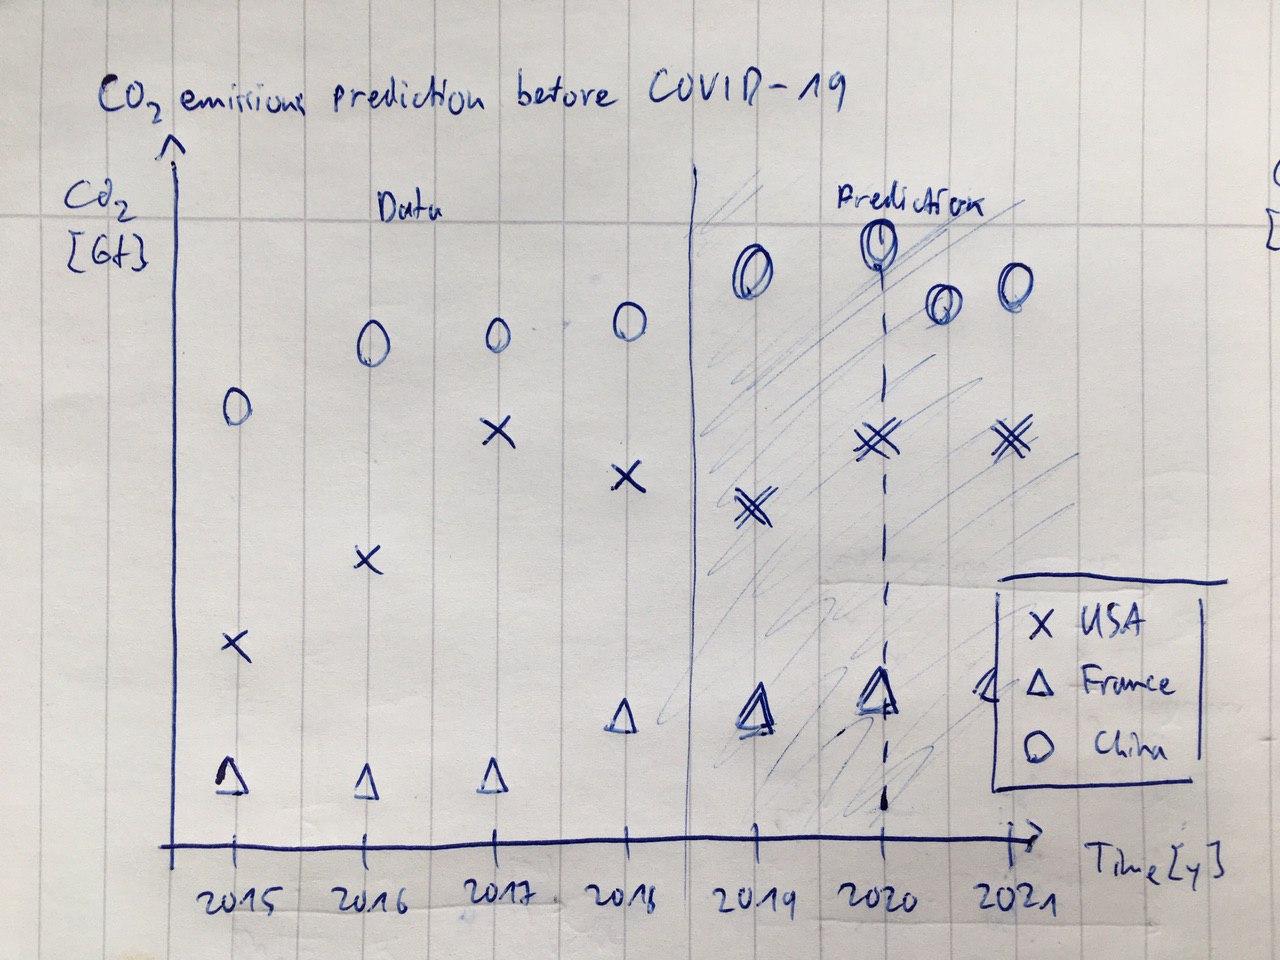 CO2 emissions prediction before COVID-19
CO2
[Gt]
Data
Prediction
USA
France
China
2015 2016 2017 2018 2019 2020 2021
Time [y]